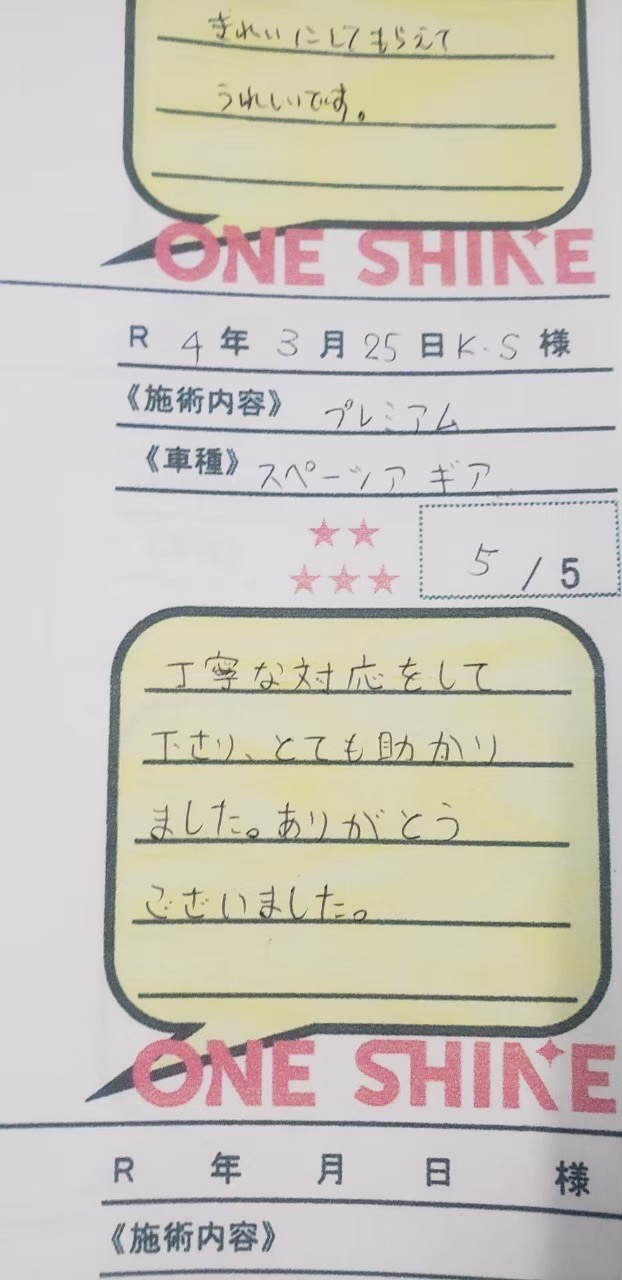 きれいにしてもらえて
うれしいです。
ONE SHINE
R 4年 3月 25日 K.S 様
《施術内容》 プレミアム
《車種》 スペーシア ギア
★★
★★★
5 / 5
丁寧な対応をして
下さり、とても助かり
ました。ありがとう
ございました。
ONE SHINE
R 年 月 日 様
《施術内容》